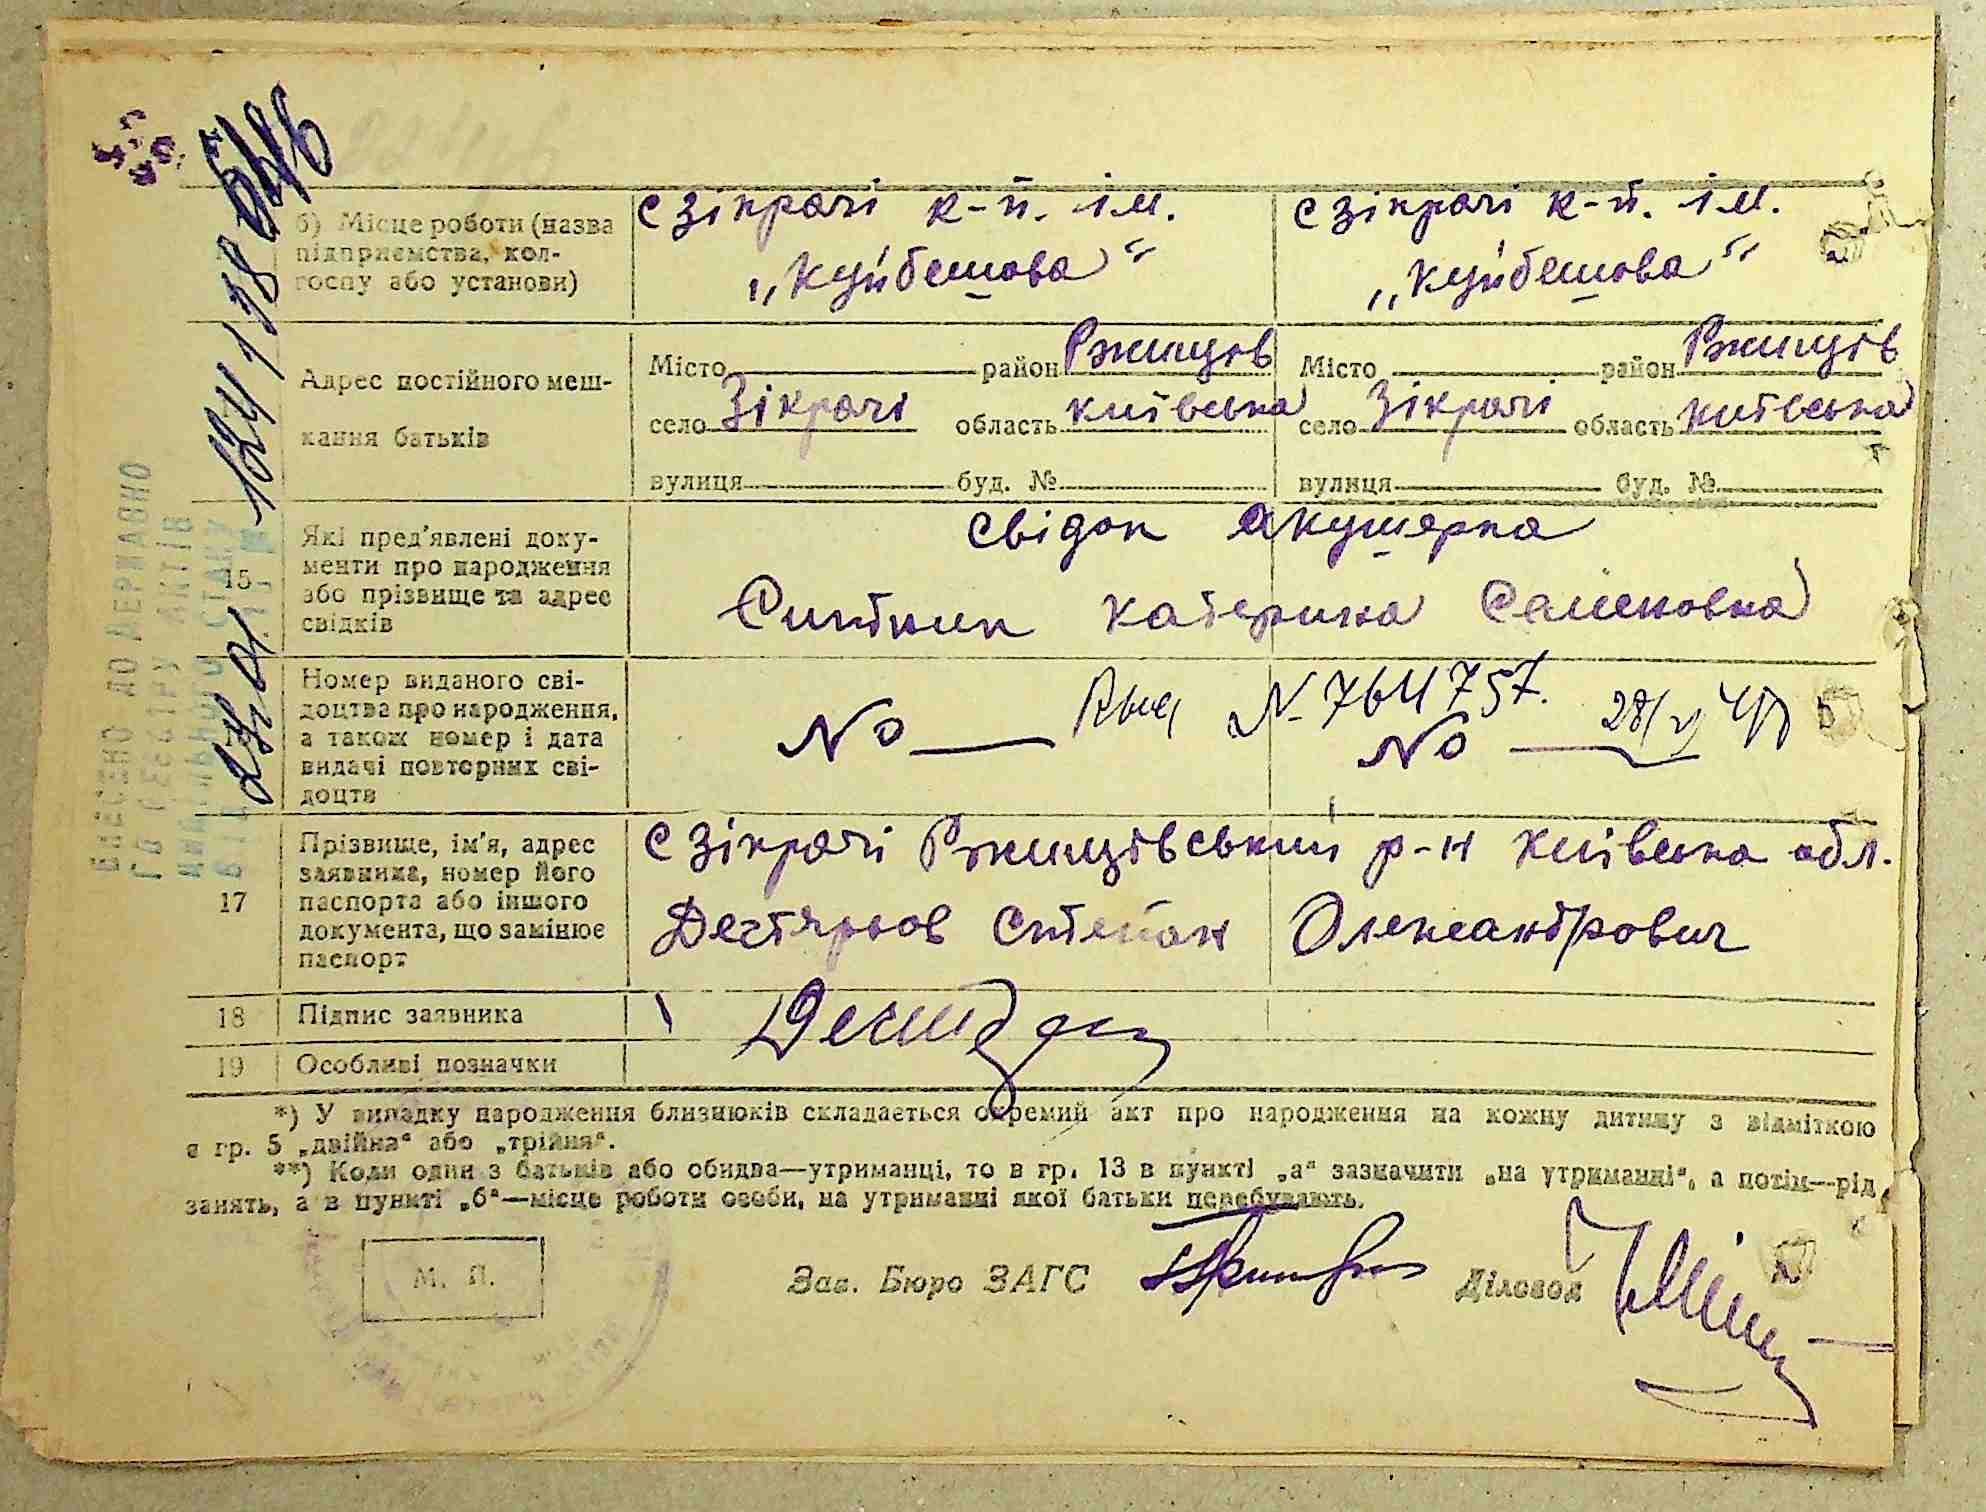 б) Місце роботи (назва підприємства, колгоспу або установи)
с Зікрачі к-п. ім.
„Куйбешова“
с Зікрачі к-п. ім.
„Куйбешова“
Адрес постійного мешкання батьків
Місто район Ржищів
село Зікрачі область Київська
вулиця буд. №
Місто район Ржищів
село Зікрачі область Київська
вулиця буд. №
15
Які пред'явлені документи про народження
або прізвище та адрес
свідків
Свідок акушерка
Ситник Катерина Семеновна
Номер виданого свідоцтва про народження,
а також номер і дата
видачі повторних свідоцтв
№ — № 764757.
№ —
17
Прізвище, ім'я, адрес
заявника, номер його
паспорта або іншого
документа, що замінює
паспорт
с Зікрачі Ржищівський р-н Київська обл.
Дегтярьов Степан Олександрович
18 Підпис заявника
19 Особливі позначки
*) У випадку народження близнюків складається окремий акт про народження на кожну дитину з відміткою
в гр. 5 „двійня“ або „трійня“.
**) Коли один з батьків або обидва—утриманці, то в гр. 13 в пункті „а“ зазначити „на утриманні“, а потім—рід
занять, а в пункті „б“—місце роботи особи, на утриманні якої батьки перебувають.
М. П.
Зав. Бюро ЗАГС
Діловод
ВНЕСЕНО ДО ДЕРЖАВНО